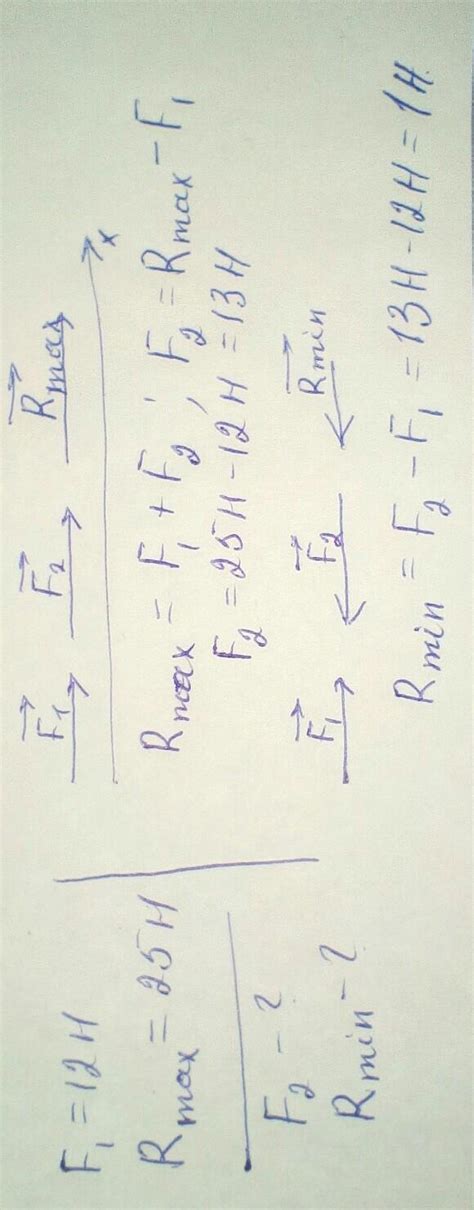 F₁ = 12Н
R max = 25Н
F₂ - ?
R min - ?
F₁ F₂ R max
x
R max = F₁ + F₂ ; F₂ = R max - F₁
F₂ = 25Н - 12Н = 13Н
F₁ F₂ R min
R min = F₂ - F₁ = 13Н - 12Н = 1Н.